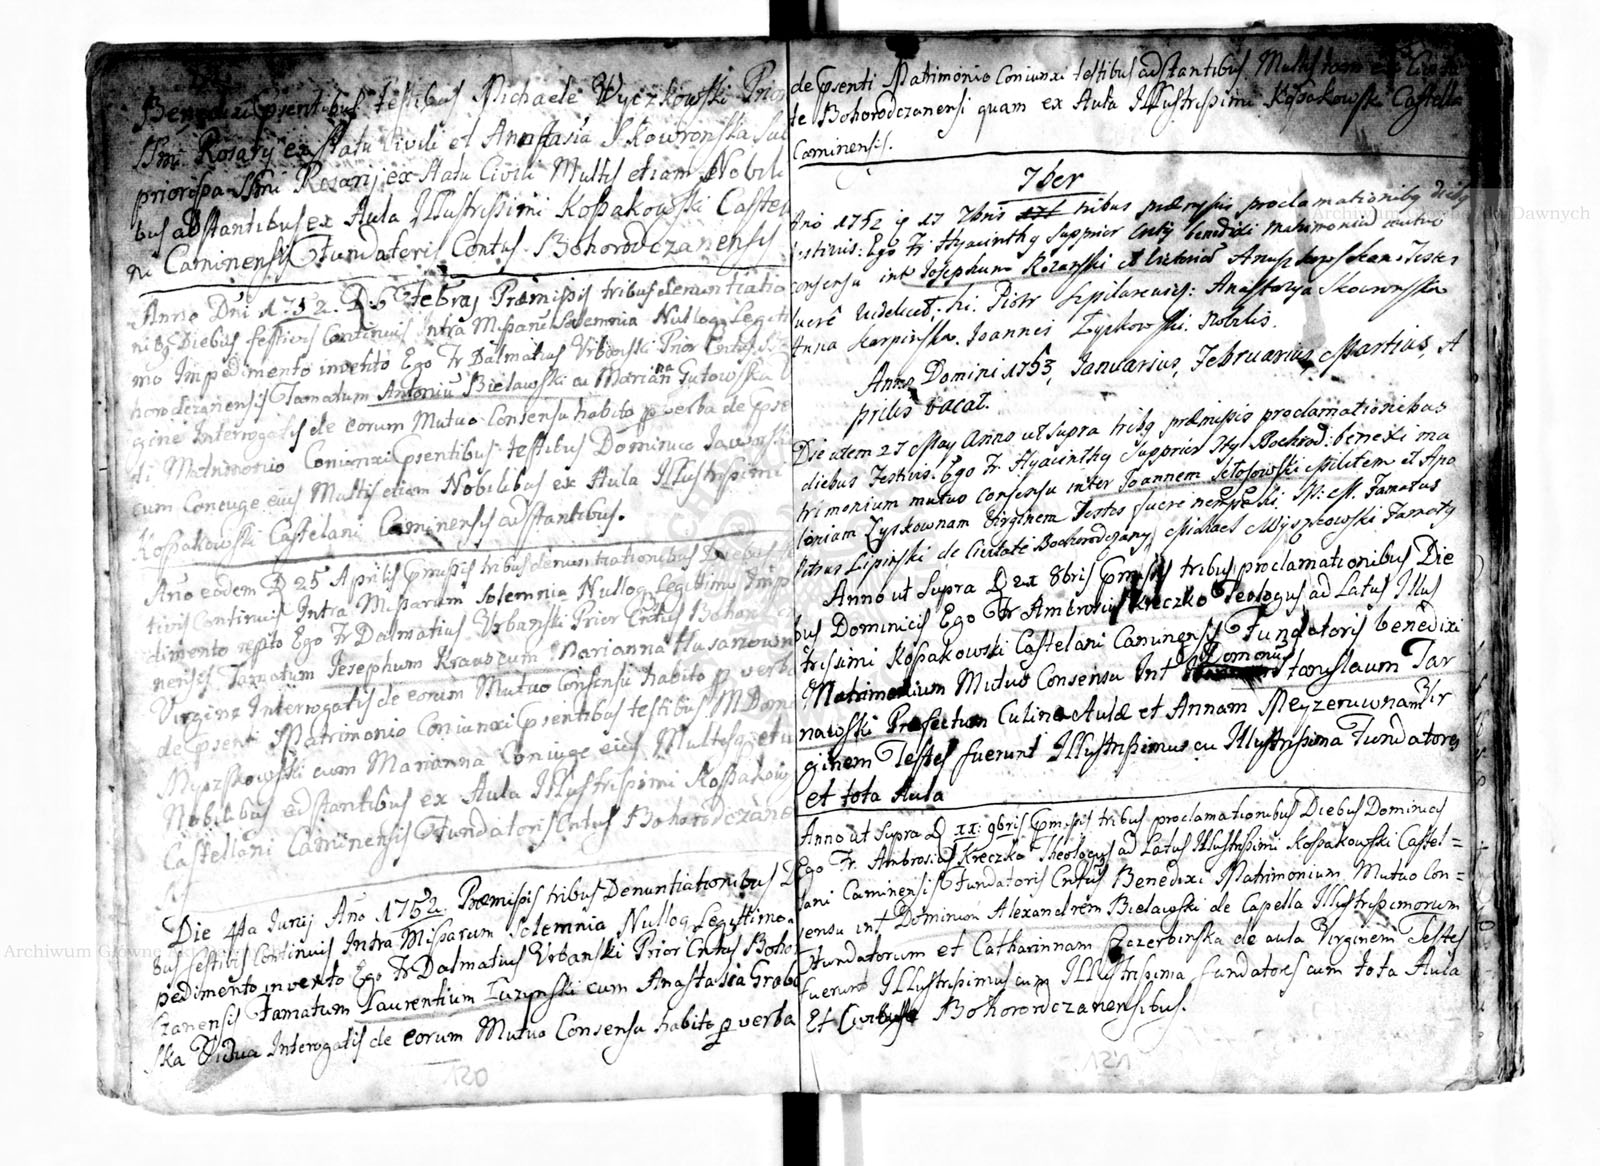 Benedixi psentibus testibus Michaele Wyczkowski Prior
SSmi Rosarij ex Statu Civili et Annastasia Skowronska Sub
priorissa SSmi Rosarij ex Statu Civili Multis etiam Nobili
bus adstantibus ex Aula Illustrissimi Kossakowski Castella
ni Caminensis Fundatoris Contus Bohorodczanensis
Anno Dni 1752. D. 6 Febraj Præmissis tribus denuntiatio
nibg Diebus festivis Continuis Intra Missarū Solemnia Nulloq Legiti
mo Impedimento invento Ego Fr Dalmatius Urbanski Prior Cntus Bo
horodczanensis Famatum Antoniū Bielawski cu Mariañna Gutowska
gine Interrogatis de eorum Mutuo Consensu habito p verba de pse
ti Matrimonio Coniunxi psentibus testibus Dominico Jaworski
cum Coneuge eius Multis etiam Nobilibus ex Aula Illustrissimi
Kossakowski Castelani Caminensis adstantibus.
Año eodem D 25 Aprilis pmissis tribus denuntiationibus Diebus fes
tivis Continuis Intra Missarum Solemnia Nulloq Legittimo Imp
dimento repto Ego Fr Dalmatius Urbanski Prior Cntus Bohorodcza
nensis Famatum Iosephum Kraus cum Marianna Husarowna
Virgine Interrogatis de eorum Mutuo Consensu habito p verba
de psenti Matrimonio Coniunxi psentibus testibus M Dom
Myszkowski cum Marianna Coniuge eius Multisq etia
Nobilibus adstantibus ex Aula Illustrissimi Kossakows
Castellani Caminensis Fundatoris Cntus Bohorodczane
Die 4ta Junij Año 1752. Præmissis tribus Denuntiationibus D
bus festivis Continuis Intra Missarum Solemnia Nulloq Legittimo
pedimento invento Ego Fr Dalmatius Urbanski Prior Cntus Boho
czanensis Famatum Laurentium Luzynski cum Anastasia Grab
ska Vidua Interogatis de eorum Mutuo Consensu habito p verba
120
de psenti Matrimonio Coniunxi testibus adstantibus Multis tam ex Civita
te Bohorodczanensi quam ex Aula Illustrissimi Kossakowski Castella
Caminensis.
7ber
Año 1752 17 7bris tribus præmissis proclamationibg diebg
festivis: Ego Fr Hyacinthg Supprior Cntg benedixi matrimoniū mutuo
consensu int Josephum Rozanski et Victoriā Anuszkowskam Testes
fuere videlicet: Piotr Szpilarewicz: Anastazya Skowronska
Anna Karpinska. Joannes Zyskowski. Nobilis.
Anno Domini 1753, Januarius, Februarius, Martius, A
prilis vacat.
Die autem 27 May Anno ut supra tribg præmissis proclamationibus
diebus Festivis. Ego Fr. Hyacinthg Supprior Cntg Bochrod: benedixi ma
trimonium mutuo consensu inter Joannem Sokolowski Militem et Apo
loniam Zyskownam Virginem Testes fuere nempe Famatus
Petrus Lipinski de Civitate Bochorodczany, Michael Myszkowski Famatg
Anno ut Supra D 21 8bris pmissis tribus proclamationibus Die
bus Dominicis Ego Fr Ambrosius Kreczko Teologus ad Latus Illus
trissimi Kossakowski Castelani Caminensis Fundatoris benedixi
Matrimonium Mutuo Consensu Int Stanislaum Tar
nawski Præfectum Culinæ Aulæ et Annam Meyzerownam Vir
ginem Testes fuerunt Illustrissimus cu Illustrissima Fundatores
et tota Aula
Anno ut Supra D XX: 9bris pmissis tribus proclamationibus Diebus Dominicis
Ego Fr. Ambrosius Kreczko Theologus ad Latus Illustrissimi Kossakowski Castel=
lani Caminensis Fundatoris Cntus Benedixi Matrimonium, Mutuo Con=
sensu int Dominum Alexandrem Bielawski de Capella Illustrissimorum
Fundatorum et Catharinnam Szczerbinska de aula Virginem Testes
fuerunt Illustrissimus cum Illustrissima fundatores cum tota Aula
Et Civibus Bohorodczanensibus.
121
Archiwum Główne Akt Dawnych
Archiwum Główne Akt Dawnych